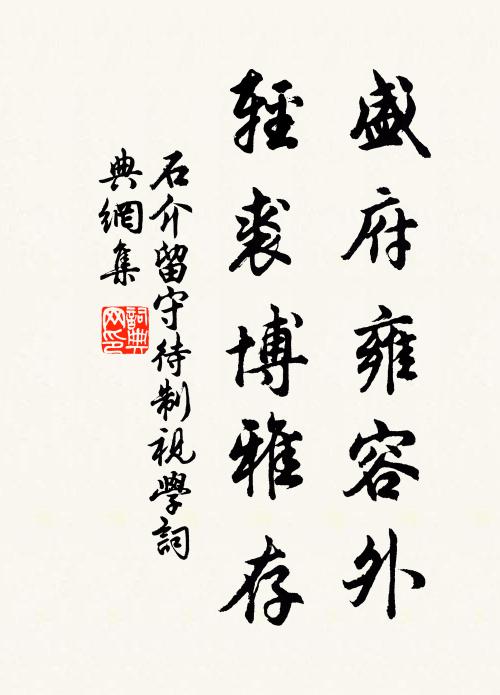 盛府雍容外
輕裘博雅存
石介留守待制視學詞
典網集
詞典网印